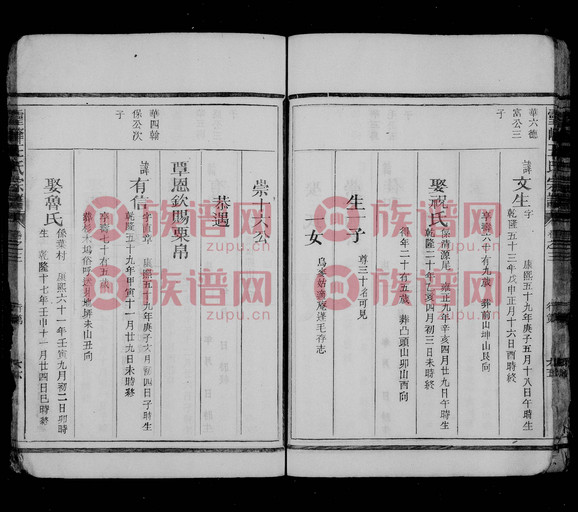 華六德
富公三
子
諱文生
字
康熙五十九年庚子五月十八日午時生
乾隆五十三年戊申正月十六日酉時終
享壽六十有九歲
葬前山坤山艮向
娶祝氏
係清源尾
雍正九年辛亥四月廿九日午時生
乾隆二十年乙亥四月初三日未時終
得年二十有五歲
葬凸頭山卯山酉向
生一子
尊三十名可見
一女
崇十六公
恭遇
覃恩欽賜粟帛
華四翰
保公次
子
諱有信
字直章
康熙五十九年庚子六月初四日子時生
乾隆五十九年甲寅十一月廿九日未時終
享壽七十有五歲
娶魯氏
係葉村
康熙六十一年壬寅九月初二日卯時
生
乾隆十七年壬申十一月廿四日巳時終
族谱网
zupu.cn